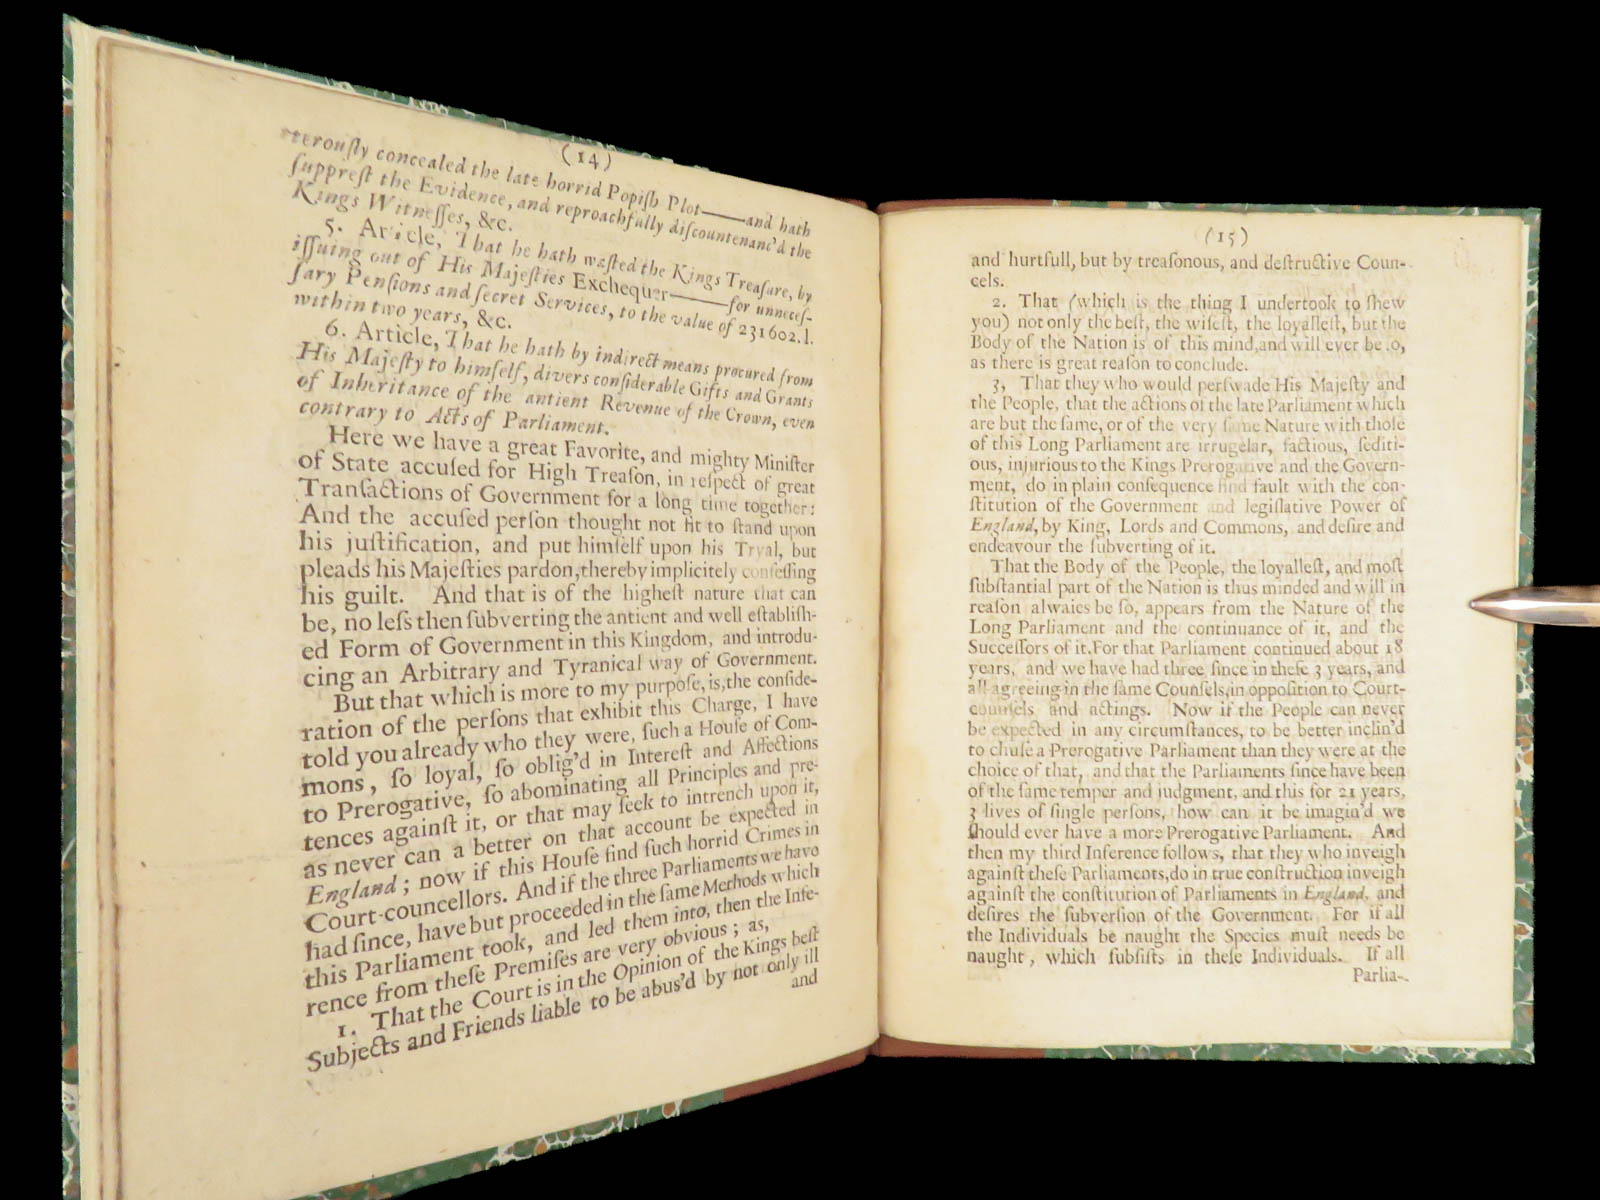 (14)
terouſly concealed the late horrid Popiſh Plot——and hath
ſuppreſt the Evidence, and reproachfully diſcountenanc'd the
Kings Witneſſes, &c.
5. Article, That he hath waſted the Kings Treaſure, by
iſſuing out of His Majeſties Exchequer——for unneceſ-
ſary Penſions and ſecret Services, to the value of 231602. l.
within two years, &c.
6. Article, That he hath by indirect means procured from
His Majeſty to himſelf, divers conſiderable Gifts and Grants
of Inheritance of the antient Revenue of the Crown, even
contrary to Acts of Parliament.
Here we have a great Favorite, and mighty Miniſter
of State accuſed for High Treaſon, in reſpect of great
Tranſactions of Government for a long time together:
And the accuſed perſon thought not fit to ſtand upon
his juſtification, and put himſelf upon his Tryal, but
pleads his Majeſties pardon, thereby implicitely confeſſing
his guilt. And that is of the higheſt nature that can
be, no leſs then ſubverting the antient and well eſtabliſh-
ed Form of Government in this Kingdom, and introdu-
cing an Arbitrary and Tyranical way of Government.
But that which is more to my purpoſe, is, the conſide-
ration of the perſons that exhibit this Charge, I have
told you already who they were, ſuch a Houſe of Com-
mons, ſo loyal, ſo oblig'd in Intereſt and Affections
to Prerogative, ſo abominating all Principles and pre-
tences againſt it, or that may ſeek to intrench upon it,
as never can a better on that account be expected in
England; now if this Houſe find ſuch horrid Crimes in
Court-councellors. And if the three Parliaments we have
had ſince, have but proceeded in the ſame Methods which
this Parliament took, and led them into, then the Infe-
rence from theſe Premiſes are very obvious; as,
1. That the Court is in the Opinion of the Kings beſt
Subjects and Friends liable to be abus'd by not only ill
and
(15)
and hurtfull, but by treaſonous, and deſtructive Coun-
cels.
2. That (which is the thing I undertook to ſhew
you) not only the beſt, the wiſeſt, the loyalleſt, but the
Body of the Nation is of this mind, and will ever be ſo,
as there is great reaſon to conclude.
3, That they who would perſwade His Majeſty and
the People, that the actions of the late Parliament which
are but the ſame, or of the very ſame Nature with thoſe
of this Long Parliament are irrugelar, factious, ſediti-
ous, injurious to the Kings Prerogative and the Govern-
ment, do in plain conſequence find fault with the con-
ſtitution of the Government and legiſlative Power of
England, by King, Lords and Commons, and deſire and
endeavour the ſubverting of it.
That the Body of the People, the loyalleſt, and moſt
ſubstantial part of the Nation is thus minded and will in
reaſon alwaies be ſo, appears from the Nature of the
Long Parliament and the continuance of it, and the
Succeſſors of it. For that Parliament continued about 18
years, and we have had three ſince in theſe 3 years, and
all agreeing in the ſame Counſels, in oppoſition to Court-
counſels and actings. Now if the People can never
be expected in any circumſtances, to be better inclin'd
to chuſe a Prerogative Parliament than they were at the
choice of that, and that the Parliaments ſince have been
of the ſame temper and judgment, and this for 21 years,
3 lives of ſingle perſons, how can it be imagin'd we
ſhould ever have a more Prerogative Parliament. And
then my third Inference follows, that they who inveigh
againſt theſe Parliaments, do in true conſtruction inveigh
againſt the conſtitution of Parliaments in England, and
deſires the ſubverſion of the Government. For if all
the Individuals be naught the Species muſt needs be
naught, which ſubſiſts in theſe Individuals. If all
Parlia-